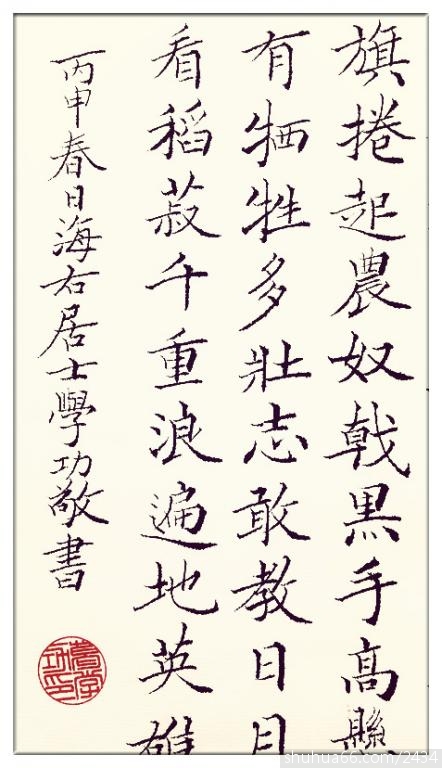 旗捲起農奴戟黑手高懸
有牺牲多壯志敢教日月
看稻菽千重浪遍地英雄
丙申春日海右居士學功敬書
shuhua66.com/2434